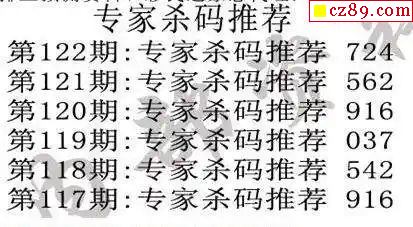 cz89.com
专家杀码推荐
第122期:专家杀码推荐 724
第121期:专家杀码推荐 562
第120期:专家杀码推荐 916
第119期:专家杀码推荐 037
第118期:专家杀码推荐 542
第117期:专家杀码推荐 916